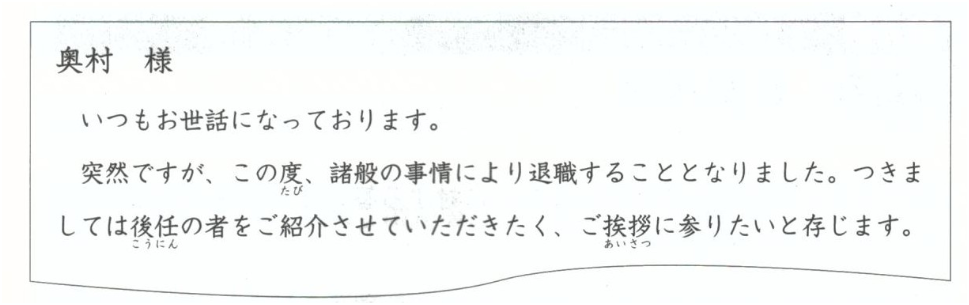 奥村　様
いつもお世話になっております。
突然ですが、この度、諸般の事情により退職することとなりました。つきま
たび
しては後任の者をご紹介させていただきたく、ご挨拶に参りたいと存じます。
こうにん　あいさつ